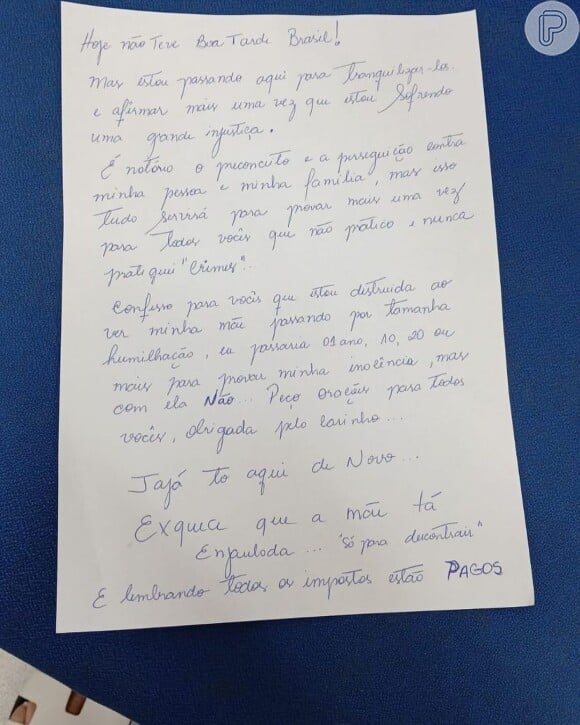 Hoje não Teve Boa Tarde Brasil!
Mas estou passando aqui para tranquilizar-los
e afirmar mais uma vez que estou Sofrendo
uma grande injustiça.
É notório o preconceito e a perseguição contra
minha pessoa e minha família, mas isso
tudo servirá para provar mais uma vez
para todos vocês que não pratico e nunca
pratiquei "Crimes"..
Confesso para vocês que estou destruida ao
ver minha mãe passando por tamanha
humilhação, eu passaria 01 ano, 10, 20 ou
mais para provar minha inocência, mas
com ela Não... Peço orações para todos
vocês, obrigada pelo carinho...
Jajá to aqui de Novo...
Exquece que a mãe tá
Enjaulada... "só para descontrair"
E lembrando todos os impostos estão PAGOS